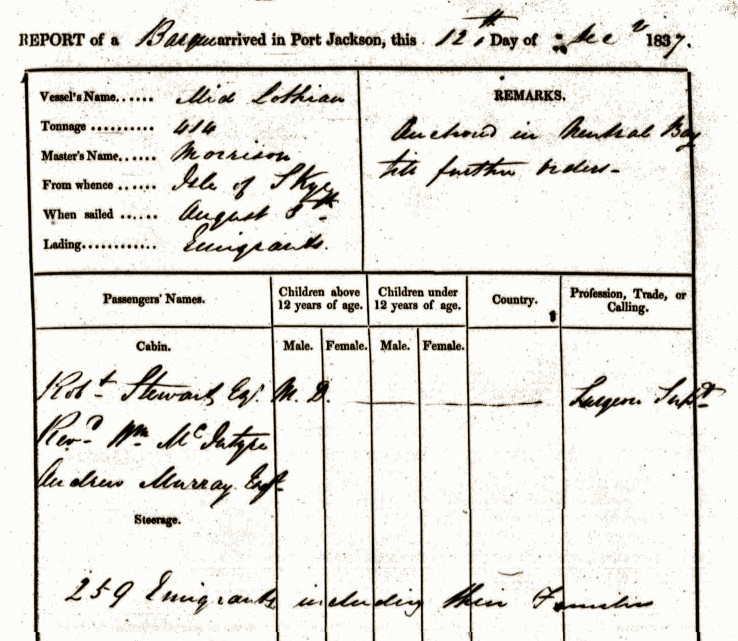 REPORT of a Barque arrived in Port Jackson, this 12th Day of Decr 1837.
Vessel's Name...... Mid Lothian
Tonnage .......... 414
Master's Name...... Morrison
From whence ...... Isle of Skye
When sailed ...... August 8th
Lading............ Emigrants.
REMARKS.
Anchored in Neutral Bay
till further orders-
Passengers' Names. Children above 12 years of age. Children under 12 years of age. Country. Profession, Trade, or Calling.
Cabin. Male. Female. Male. Female.
Robt Stewart Esqr. M. D. Surgeon Supdt
Revd Wm McIntyre
Andrew Murray Esqr
Steerage.
259 Emigrants including their Families